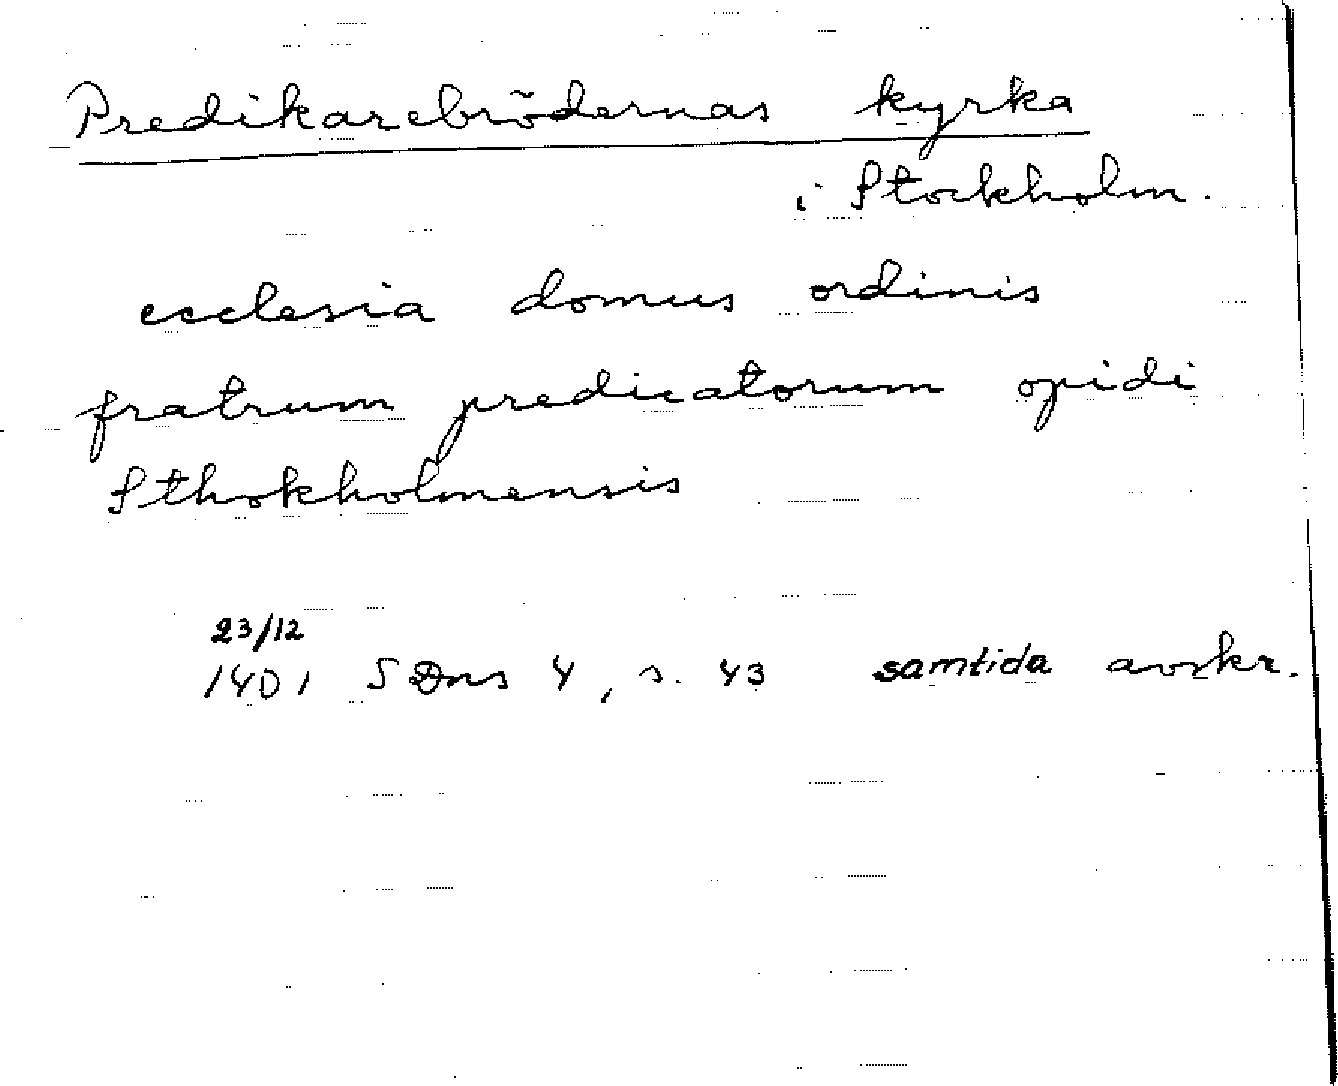 Predikarebrödernas kyrka
i Stockholm.
ecclesia domus ordinis
fratrum predicatorum opidi
Sthokholmensis
23/12
1401 SDns 4, s. 43 samtida avskr.